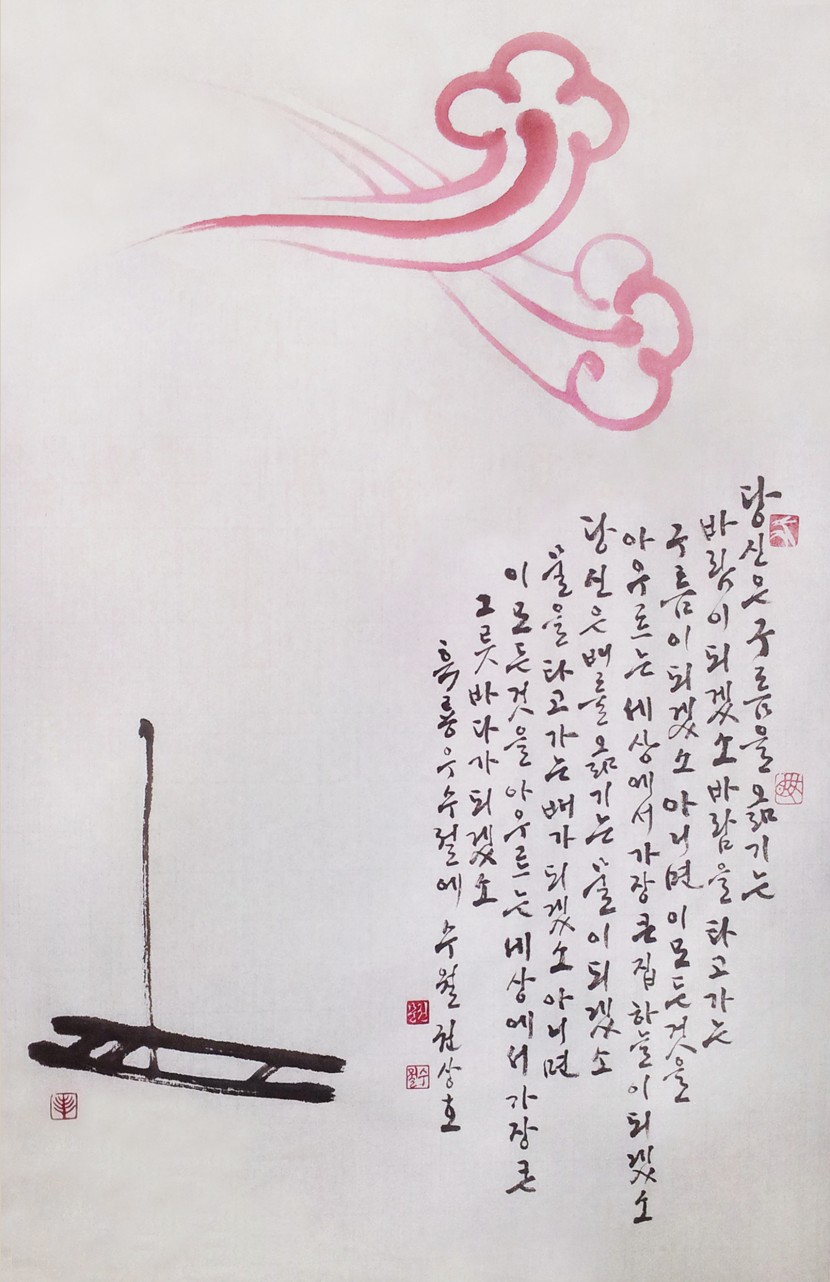 당신은 구름을 옮기는
바람이 되겠소 바람을 타고 가는
구름이 되겠소 아니면 이 모든 것을
아우르는 세상에서 가장 큰 집 하늘이 되겠소
당신은 배를 옮기는 물이 되겠소
물을 타고 가는 배가 되겠소 아니면
이 모든 것을 아우르는 세상에서 가장 큰
그릇 바다가 되겠소
흑룡 우수절에 수월 권상호